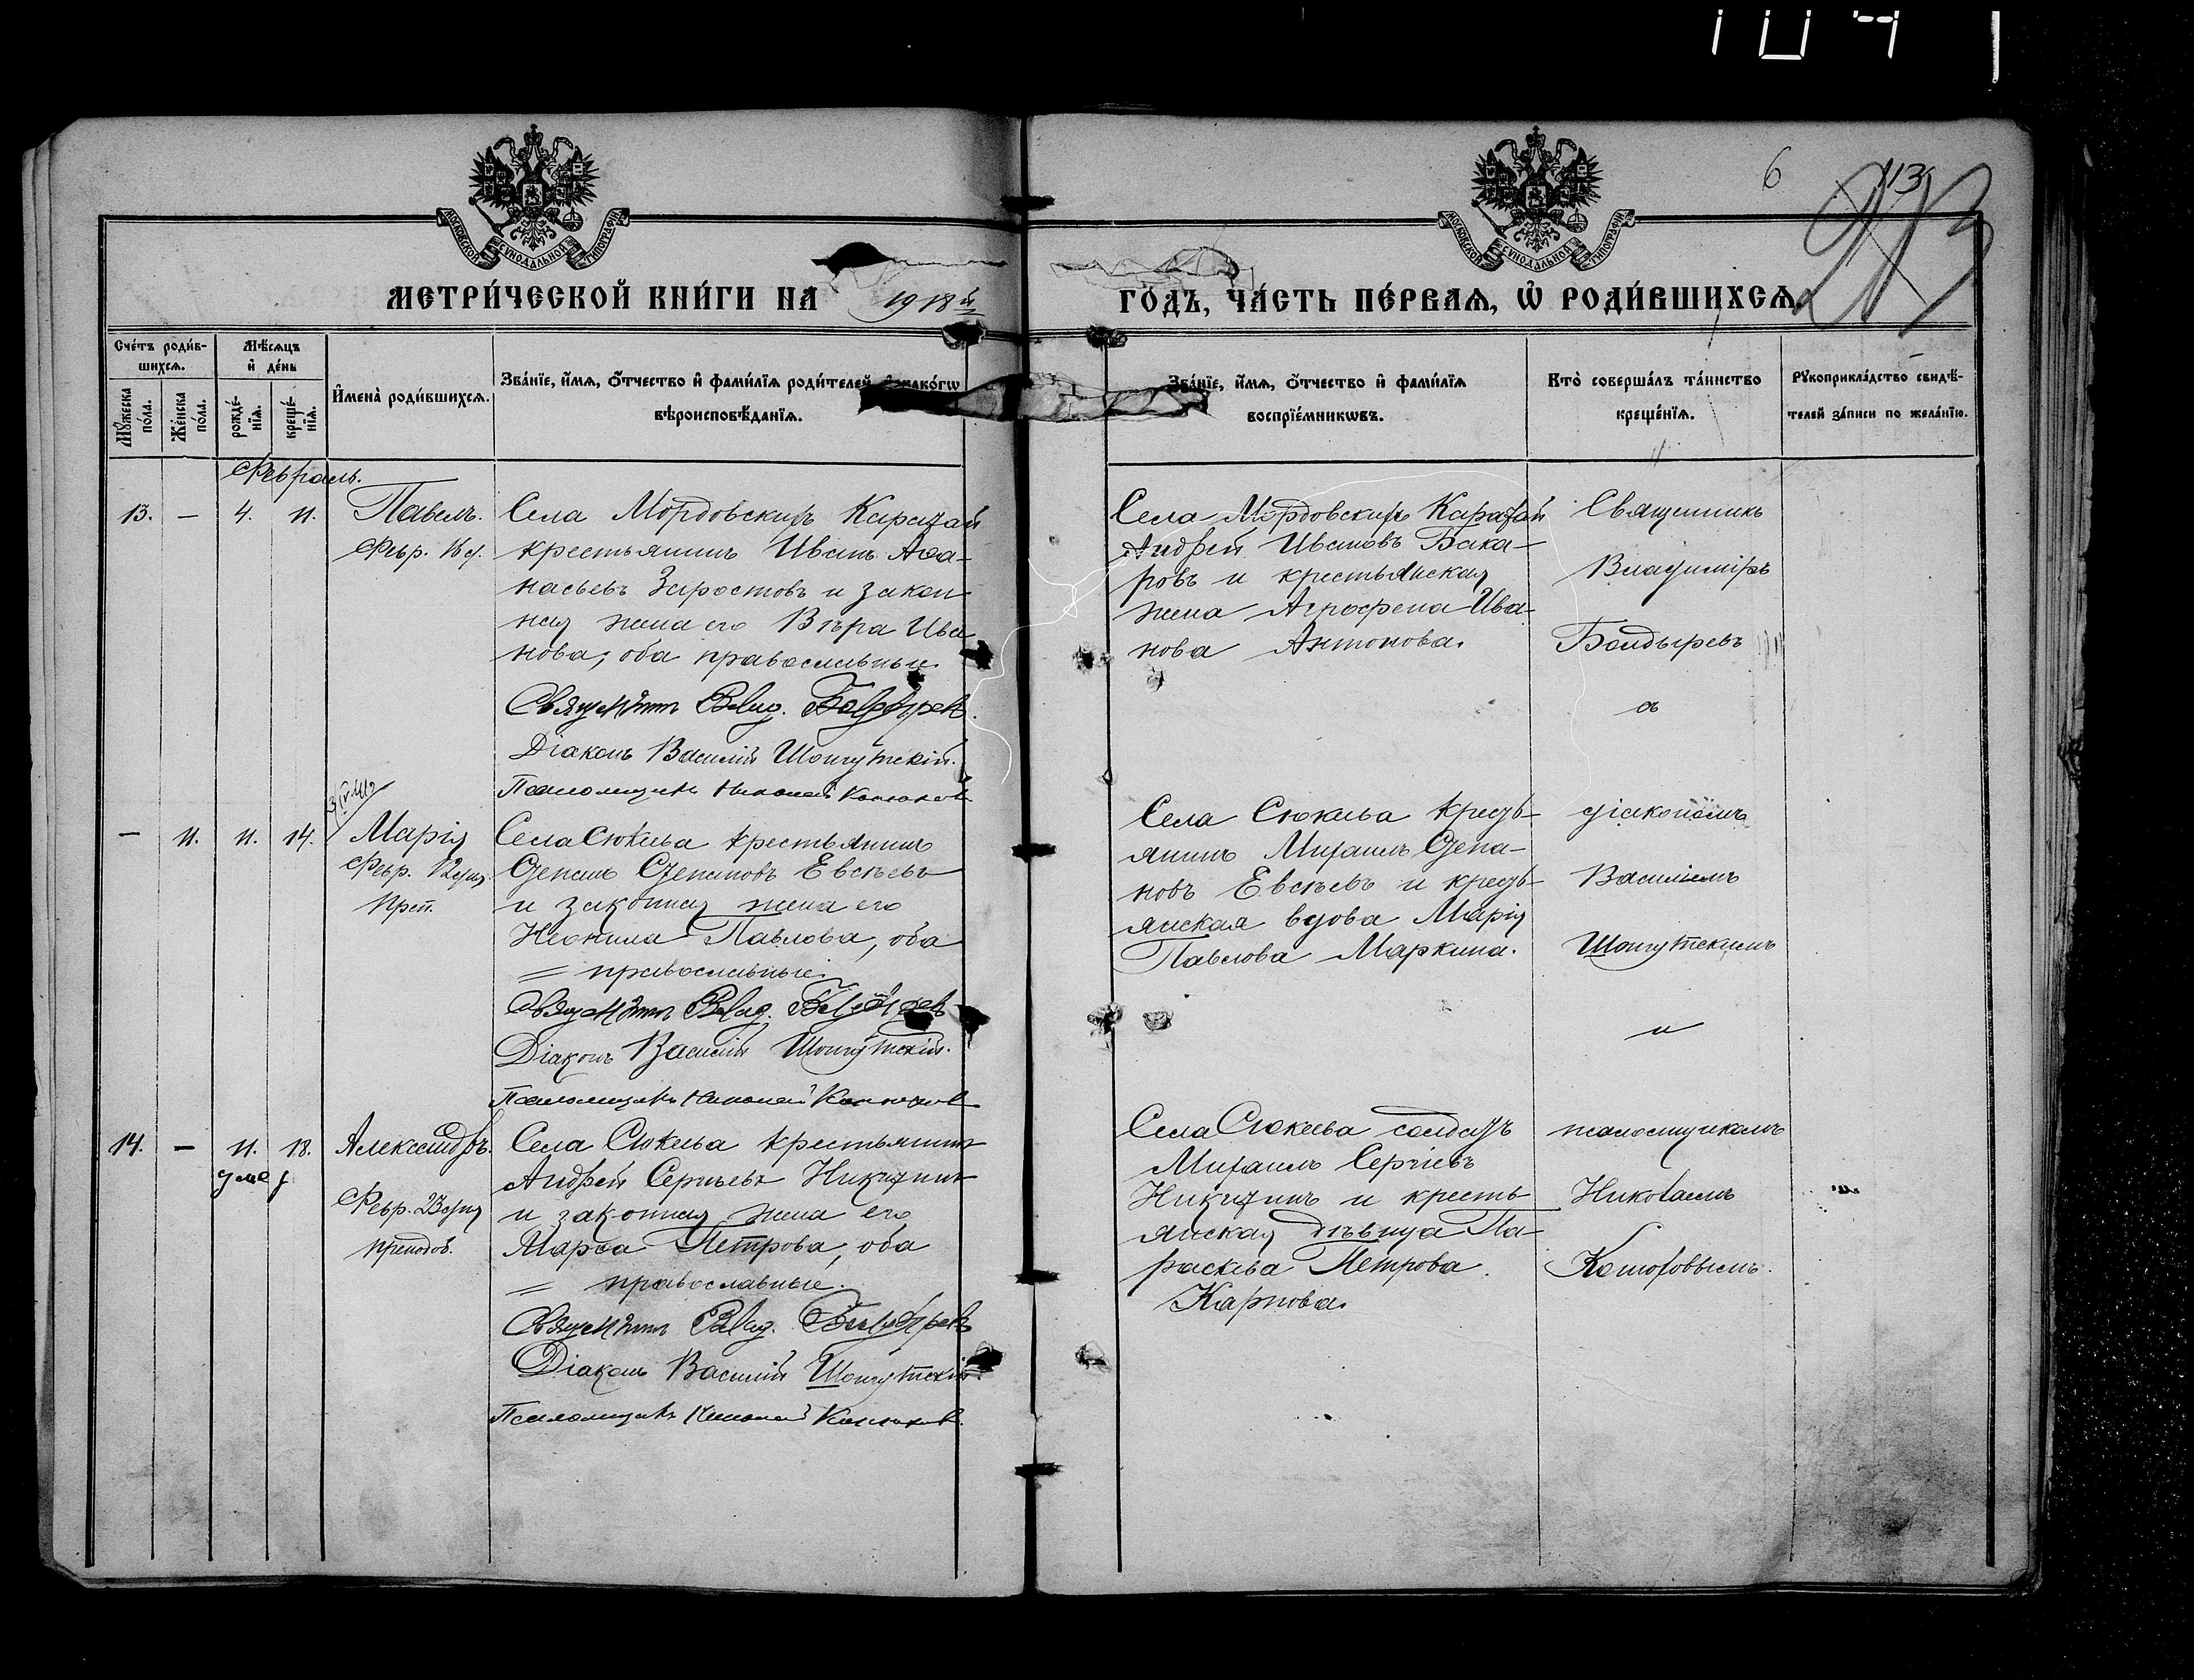 6 113
МОСКОВСКОЙ СѴНОДАЛЬНОЙ ТИПОГРАФІИ
МОСКОВСКОЙ СѴНОДАЛЬНОЙ ТИПОГРАФІИ
МЕТРИ́ЧЕСКОЙ КНИ́ГИ НА 1918 й ГО́ДЪ, ЧА́СТЬ ПЕ́РВАѦ, Ѡ РОДИ́ВШИХСѦ
Сче́тъ роди́в-
шихсѧ.
Мѣ́сѧцъ
и҆ де́нь
Мꙋжеска
по́ла.
Же́нска
по́ла.
рожде́-
нїѧ.
креще́-
нїѧ.
И҆мена̀ роди́вшихсѧ.
Зва́нїе, и҆́мѧ, ѻ҆́тчество и҆ фами́лїѧ роди́телей
вѣроисповѣ́данїѧ.
Зва́нїе, и҆́мѧ, ѻ҆́тчество и҆ фами́лїѧ
воспрїе́мникѡвъ.
Кто̀ соверша́лъ та́инство
креще́нїѧ.
Рꙋкоприкла́дство свидѣ́-
телей за́писи по жела́нїю.
Февраль.
13. — 4. 11. Павелъ.
Февр. 16 д.
Села Мордовскихъ Каратай
крестьянинъ Иванъ Аѳа-
насьевъ Заростовъ и закон
ная жена его Вѣра Ива
нова, оба православные.
Священникъ Влад. Болдырев.
Діаконъ Василій Шонгутскій.
Псаломщикъ Николай Конюхов
Села Мордовскихъ Каратай
Андрей Ивановъ Бака-
ровъ и крестьянская
жена Агрофена Ива-
нова Антонова.
Священникъ
Владиміръ
Болдыревъ
съ
— 11. 11. 14. Марія
Февр. 12 дня
Преп.
Села Сюкеева крестьянинъ
Степанъ Степановъ Евсѣевъ
и законная жена его
Неонила Павлова, оба
= православные.
Священникъ Влад. Болдырев
Діаконъ Василій Шонгутскій.
Псаломщикъ Николай Конюхов
Села Сюкеева кресть-
янинъ Михаилъ Степа-
новъ Евсѣевъ и кресть-
янская вдова Марія
Павлова Маркина.
діакономъ
Василіемъ
Шонгутскимъ
и
14. — 11. 18. Александръ.
умер
Февр. 23 дня
преподоб.
Села Сюкеева крестьянинъ
Андрей Сергѣевъ Никитинъ
и законная жена его
Марѳа Петрова, оба
= православные.
Священникъ Влад. Болдырев
Діаконъ Василій Шонгутскій.
Псаломщикъ Николай Конюхов.
Села Сюкеева солдатъ
Михаилъ Сергѣевъ
Никитинъ и кресть
янская дѣвица Па-
раскева Петрова
Карпова.
псаломщикомъ
Николаемъ
Конюховымъ.